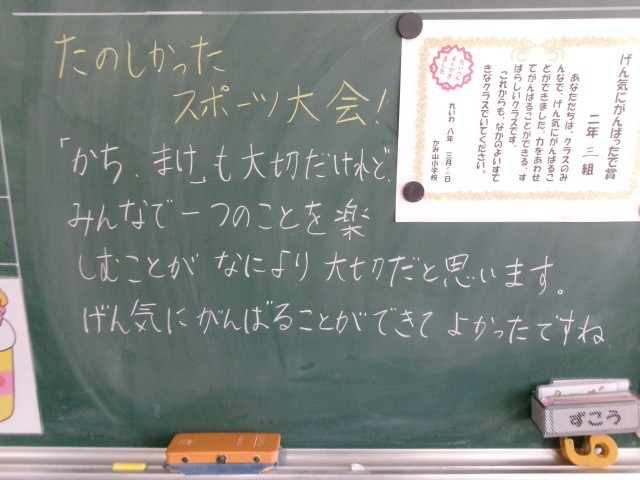 たのしかった
スポーツ大会!
「かち、まけ」も大切だけれど、
みんなで一つのことを楽
しむことが なにより 大切だと思います。
げん気に がんばることができて よかったですね
げん気にがんばったで賞
二年 三組
あなたたちは、クラスのみ
んなで、げん気にがんばるこ
とができました。力をあわせ
てがんばることができる、す
ばらしいクラスです。
これからも、なかのよいすて
きなクラスでいてください。
れいわ 八年 三月 日
かみ山小学校
ずこう